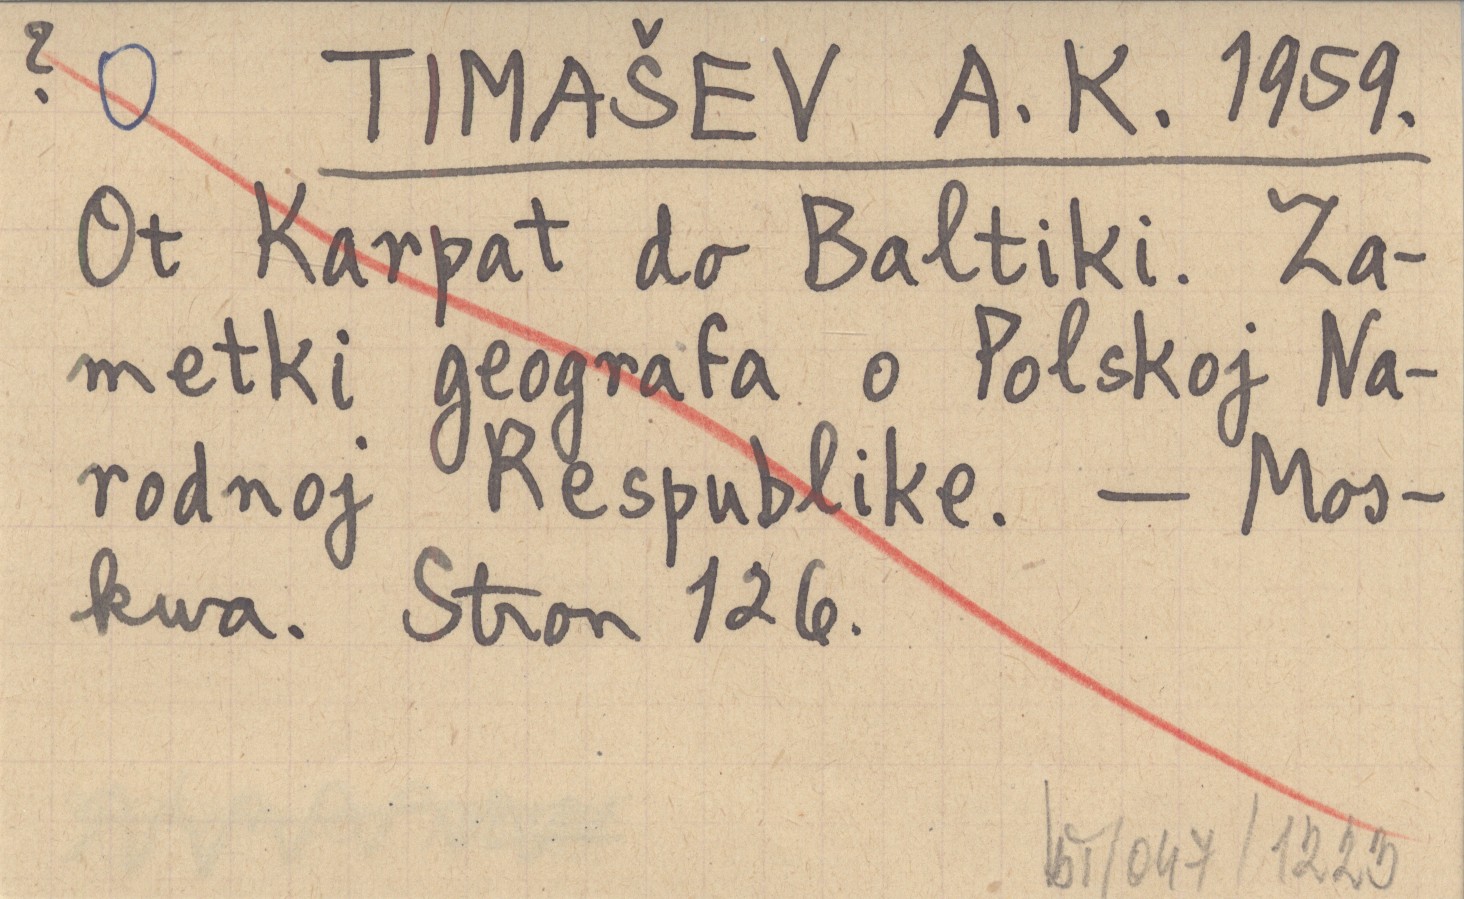 ? O TIMAŠEV A. K. 1959.
Ot Karpat do Baltiki. Za-
metki geografa o Polskoj Na-
rodnoj Respublike. — Mos-
kwa. Stron 126.
/047/1223